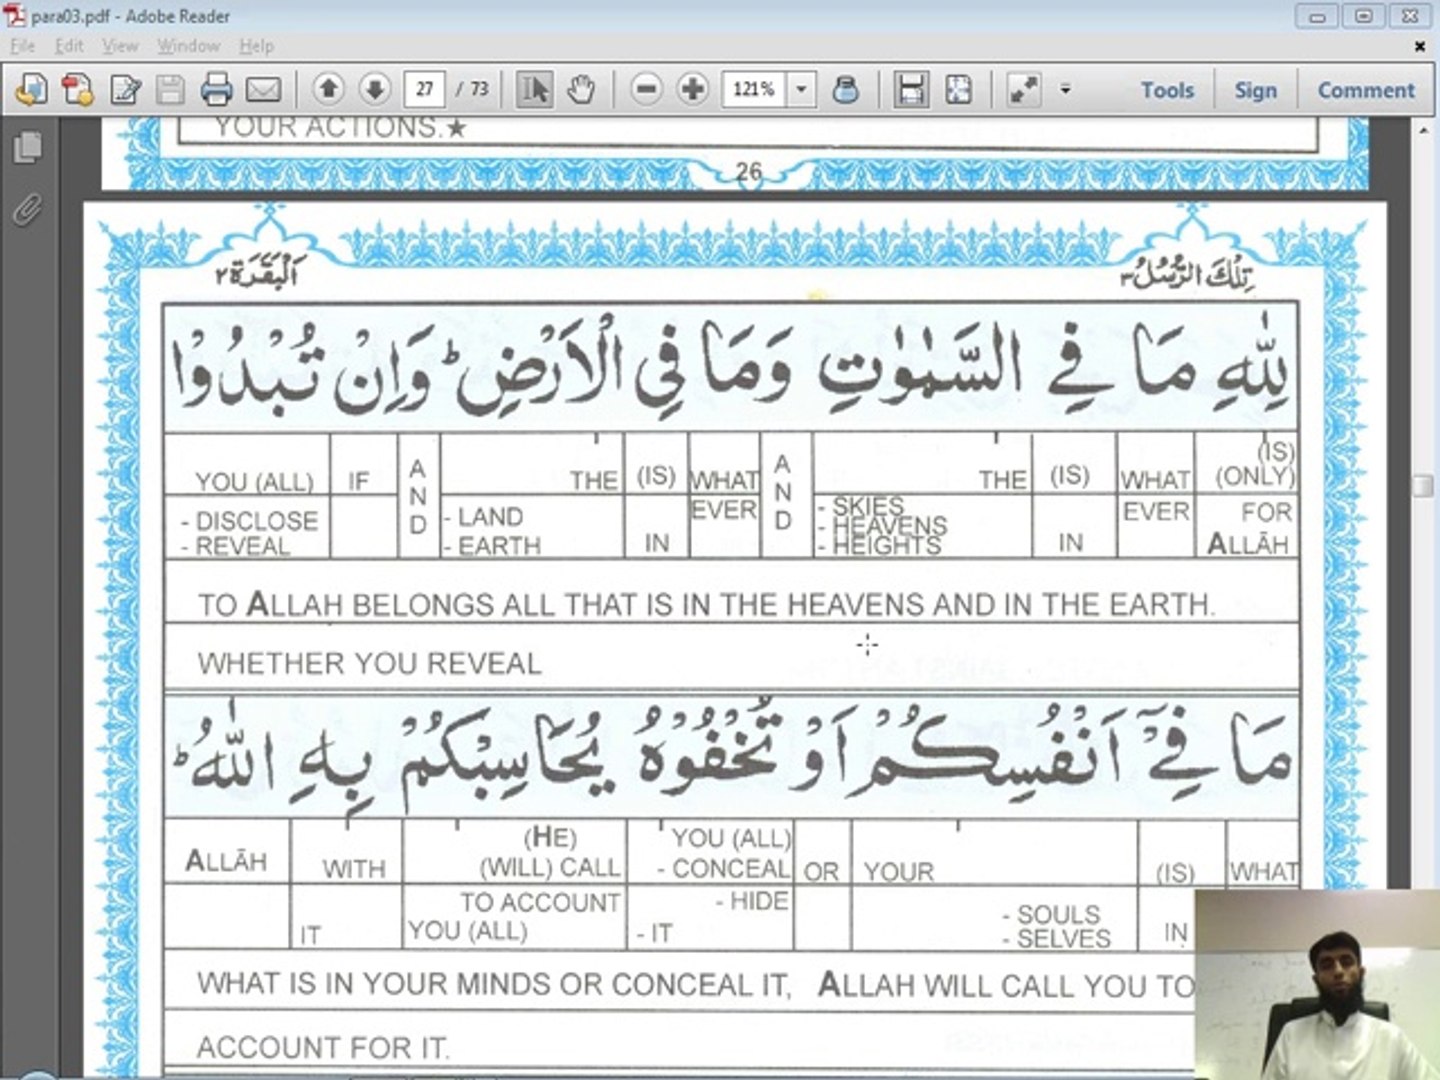 para03.pdf - Adobe Reader
File Edit View Window Help
27 / 73 121% Tools Sign Comment
YOUR ACTIONS.★
26
اَلْبَقَرَة٢ تِلْكَ الرُّسُلُ٣
لِلّٰهِ مَا فِي السَّمٰوٰتِ وَمَا فِي الْاَرْضِ ؕ وَاِنْ تُبْدُوْا
YOU (ALL) IF AND THE (IS) WHAT AND THE (IS) WHAT (IS) (ONLY)
- DISCLOSE - LAND IN EVER - SKIES IN EVER FOR
- REVEAL - EARTH - HEAVENS ALLĀH
- HEIGHTS
TO ALLAH BELONGS ALL THAT IS IN THE HEAVENS AND IN THE EARTH.
WHETHER YOU REVEAL
مَا فِيْۤ اَنْفُسِكُمْ اَوْ تُخْفُوْهُ يُحَاسِبْكُمْ بِهِ اللّٰهُ ؕ
ALLĀH WITH (HE) (WILL) CALL YOU (ALL) - CONCEAL OR YOUR (IS) WHAT
IT TO ACCOUNT YOU (ALL) - HIDE - IT - SOULS - SELVES IN
WHAT IS IN YOUR MINDS OR CONCEAL IT, ALLAH WILL CALL YOU TO
ACCOUNT FOR IT.